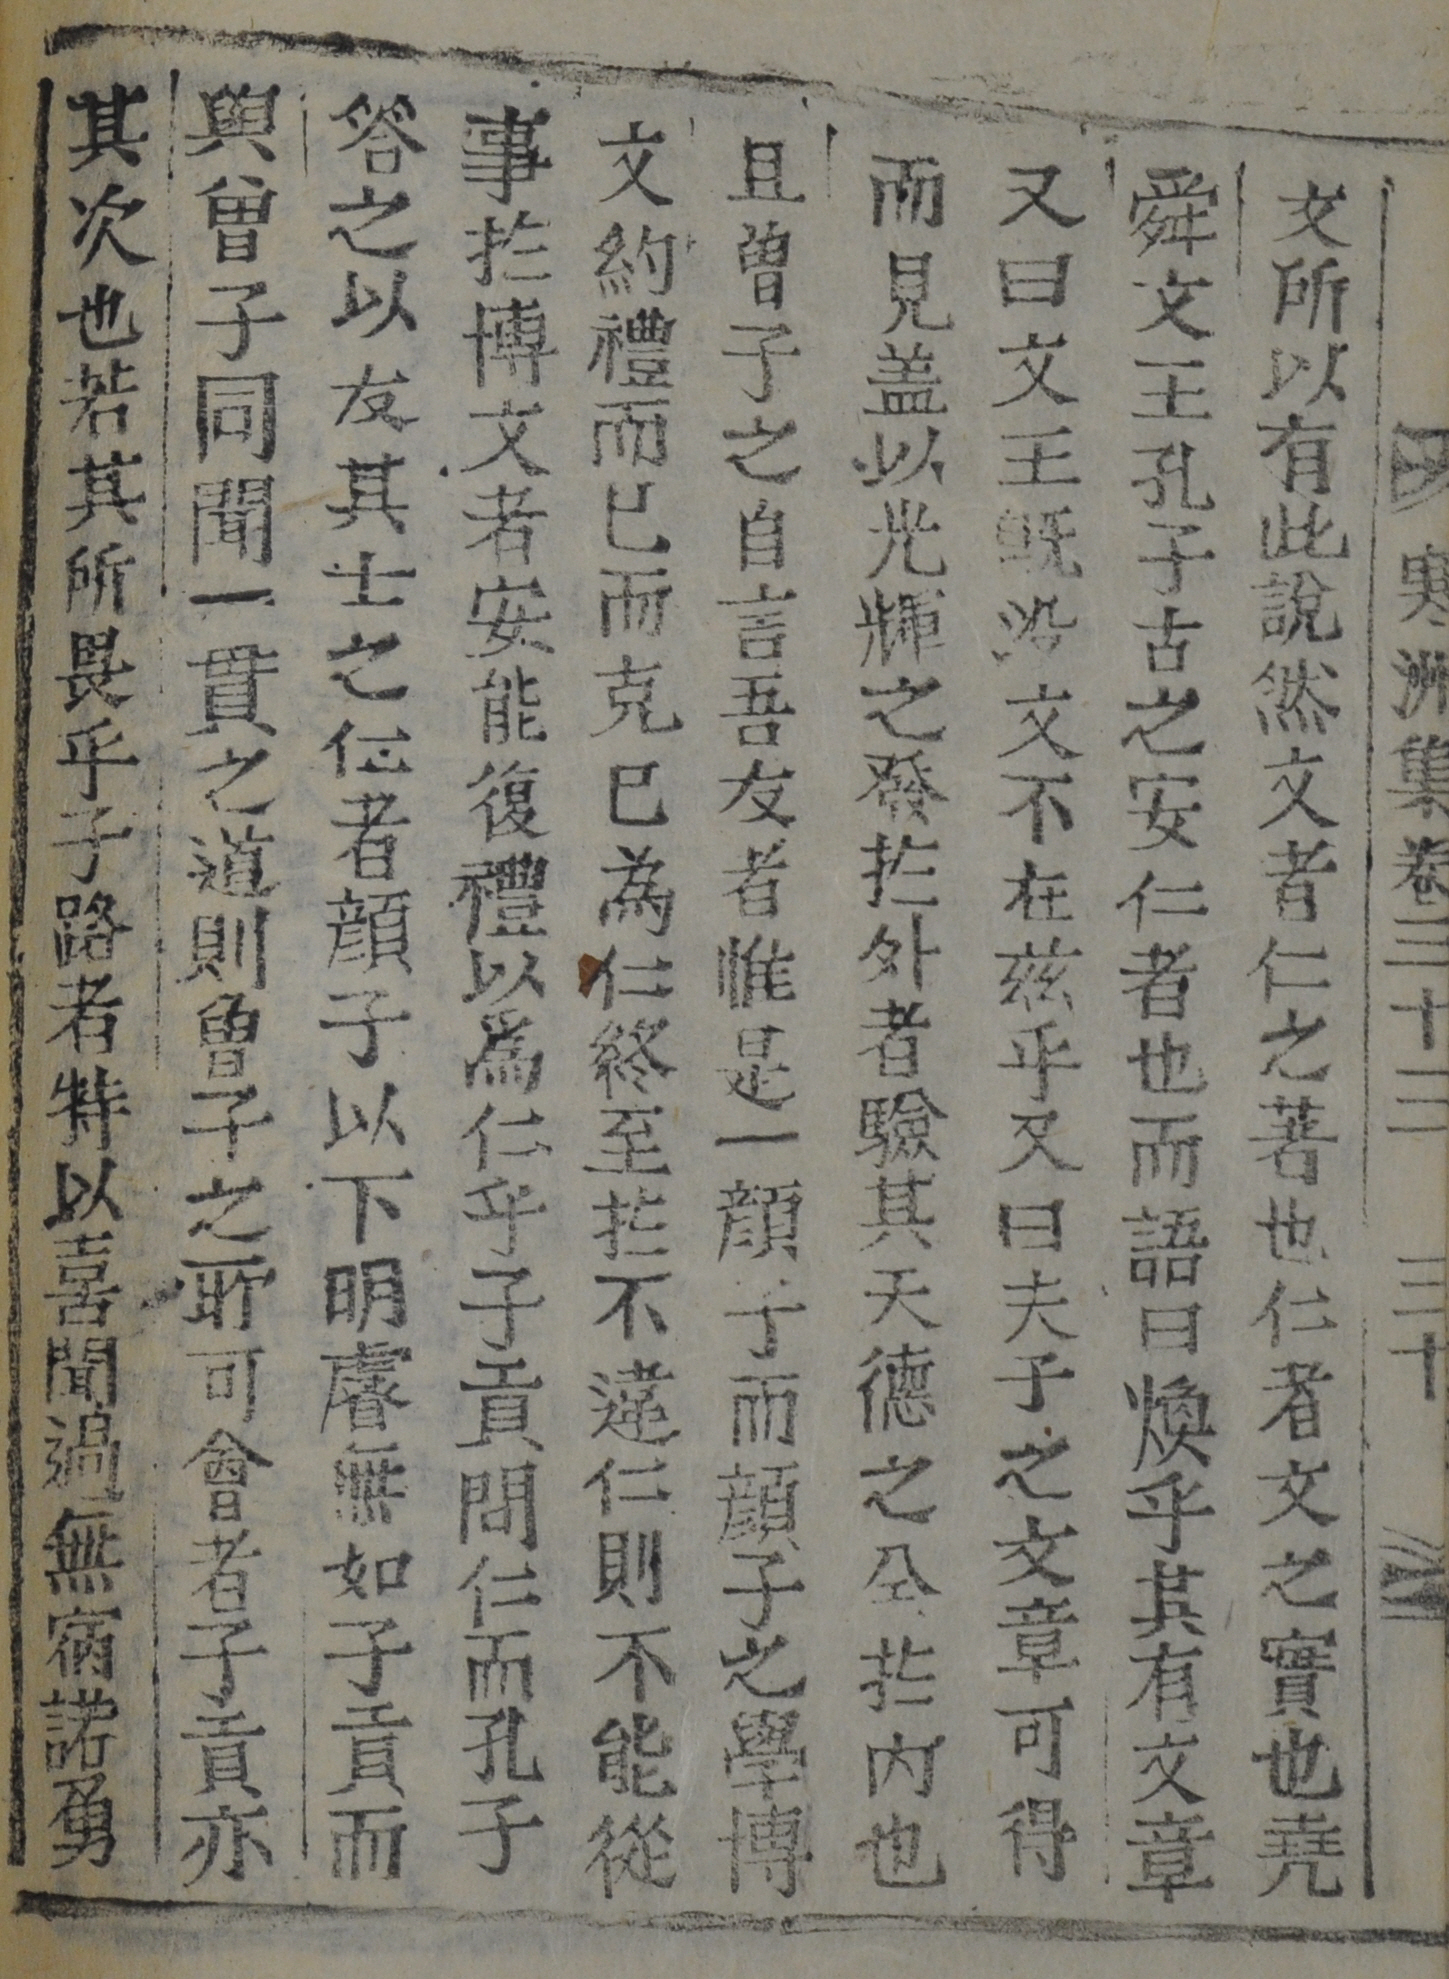 寒洲集卷三十三 三十
文所以有此說然文者仁之著也仁者文之實也堯
舜文王孔子古之安仁者也而語曰煥乎其有文章
又曰文王旣沒文不在玆乎又曰夫子之文章可得
而見盖以光輝之發扵外者驗其天德之全扵內也
且曾子之自言吾友者惟是一顔子而顔子之學博
文約禮而已而克已為仁終至扵不違仁則不能從
事扵博文者安能復禮以爲仁乎子貢問仁而孔子
答之以友其士之仁者顔子以下明睿無如子貢而
與曾子同聞一貫之道則曾子之所可會者子貢亦
其次也若其所畏乎子路者特以喜聞過無宿諾勇